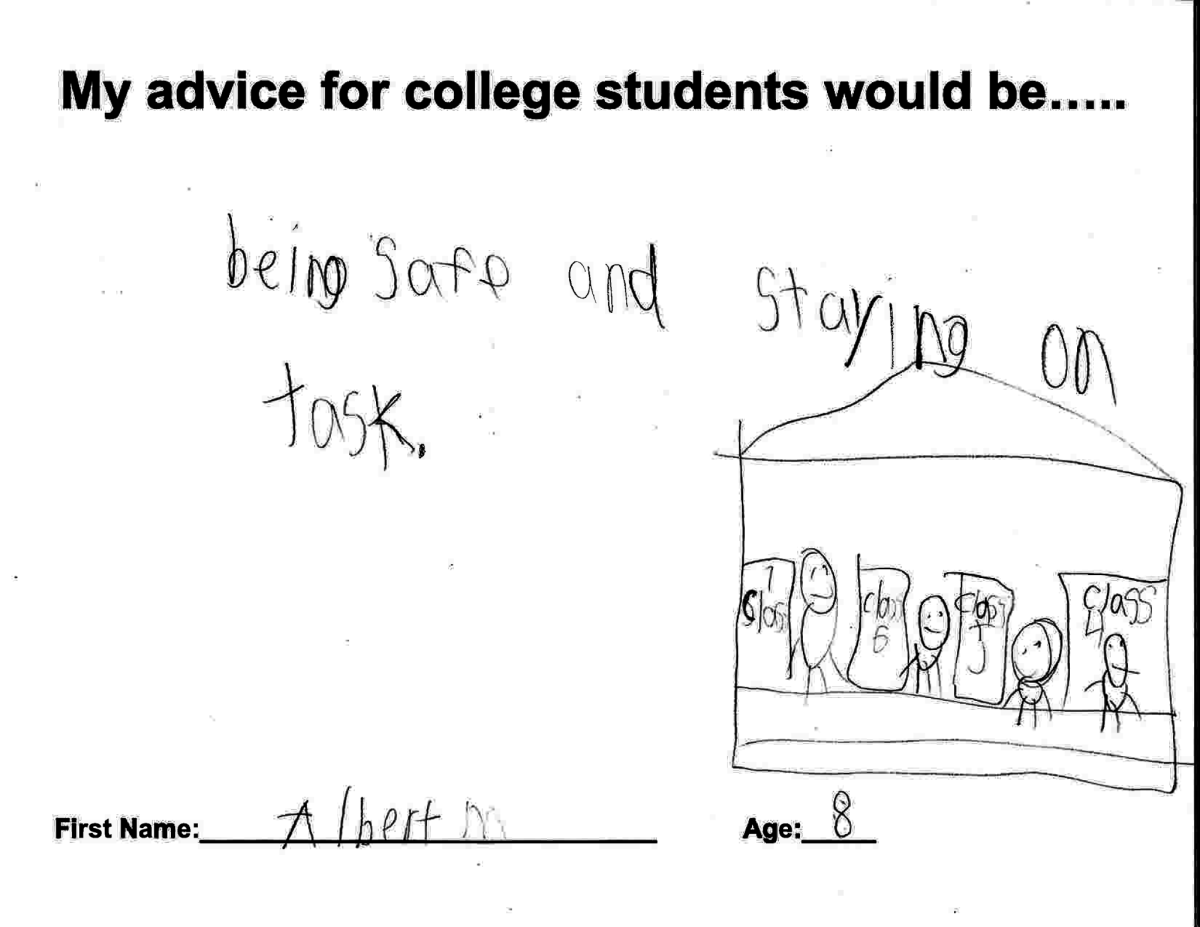 My advice for college students would be.....
being safe and staying on
task.
7
Class
class
6
class
5
class
4
First Name: Albert m
Age: 8